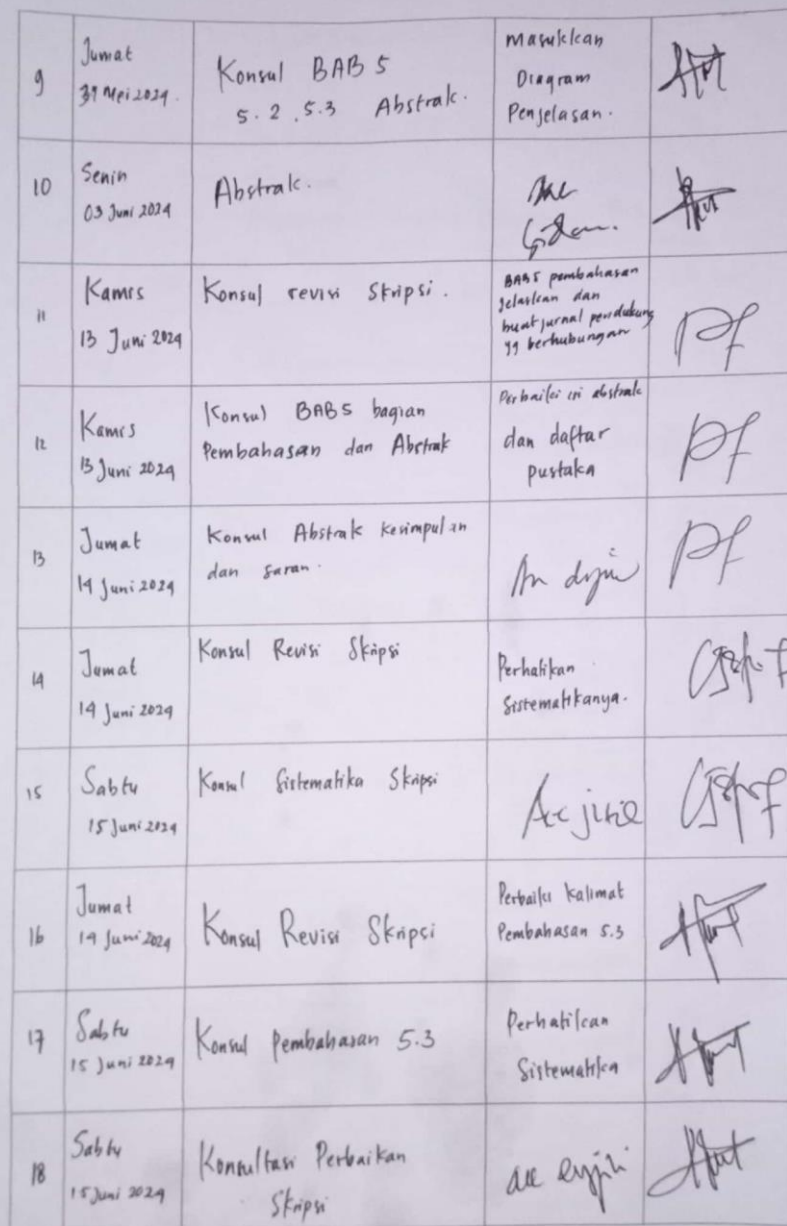 9
Jumat
31 Mei 2024.
Konsul BAB 5
5.2, 5.3 Abstrak.
Masukkan
Diagram
Penjelasan.
10
Senin
03 Juni 2024
Abstrak.
11
Kamis
13 Juni 2024
Konsul revisi Skripsi.
BAB 5 pembahasan
jelaskan dan
buat jurnal pendukung
yg berhubungan
12
Kamis
13 Juni 2024
Konsul BAB 5 bagian
Pembahasan dan Abstrak
Perbaiki isi abstrak
dan daftar
pustaka
13
Jumat
14 Juni 2024
Konsul Abstrak kesimpulan
dan saran.
14
Jumat
14 Juni 2024
Konsul Revisi Skripsi
Perhatikan
Sistematikanya.
15
Sabtu
15 Juni 2024
Konsul Sistematika Skripsi
Acc jilid
16
Jumat
14 Juni 2024
Konsul Revisi Skripsi
Perbaiki Kalimat
Pembahasan 5.3
17
Sabtu
15 Juni 2024
Konsul Pembahasan 5.3
Perhatikan
Sistematika
18
Sabtu
15 Juni 2024
Konsultasi Perbaikan
Skripsi
acc